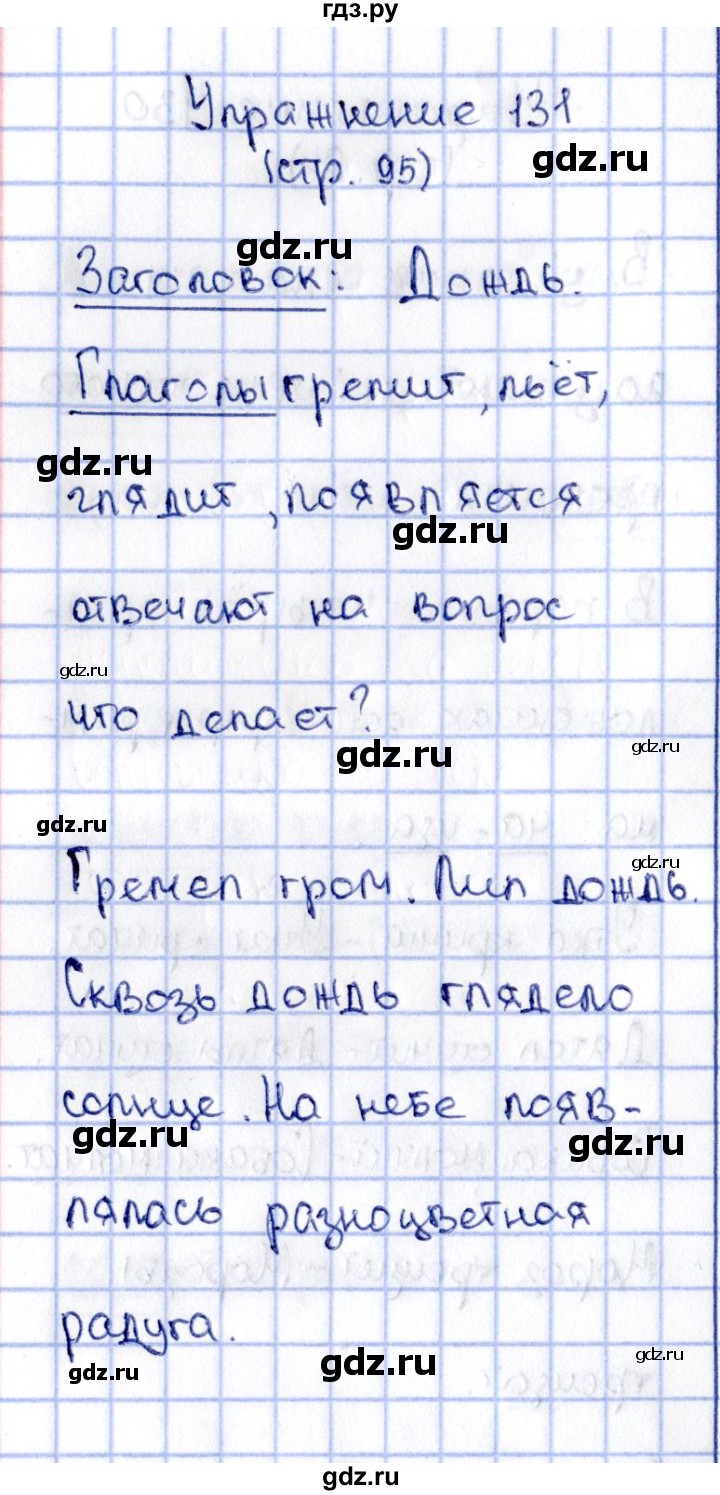 гдз.ру
Упражнение 131
gdz.ru
(стр. 95)
gdz.ru
Заголовок: Дождь.
Глаголы гремит, льёт,
gdz.ru
глядит, появляется
gdz.ru
отвечают на вопрос
gdz.ru
что делает?
gdz.ru
gdz.ru
gdz.ru
gdz.ru
Гремел гром. Лил дождь.
Сквозь дождь глядело
солнце. На небе появ-
gdz.ru
gdz.ru
лялась разноцветная
радуга.
gdz.ru
gdz.ru
gdz.ru
gdz.ru